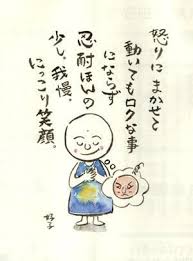 怒りにまかせて
動いてもロクな事
にならず
忍耐ほんの
少し、我慢、
にっこり笑顔、
好子